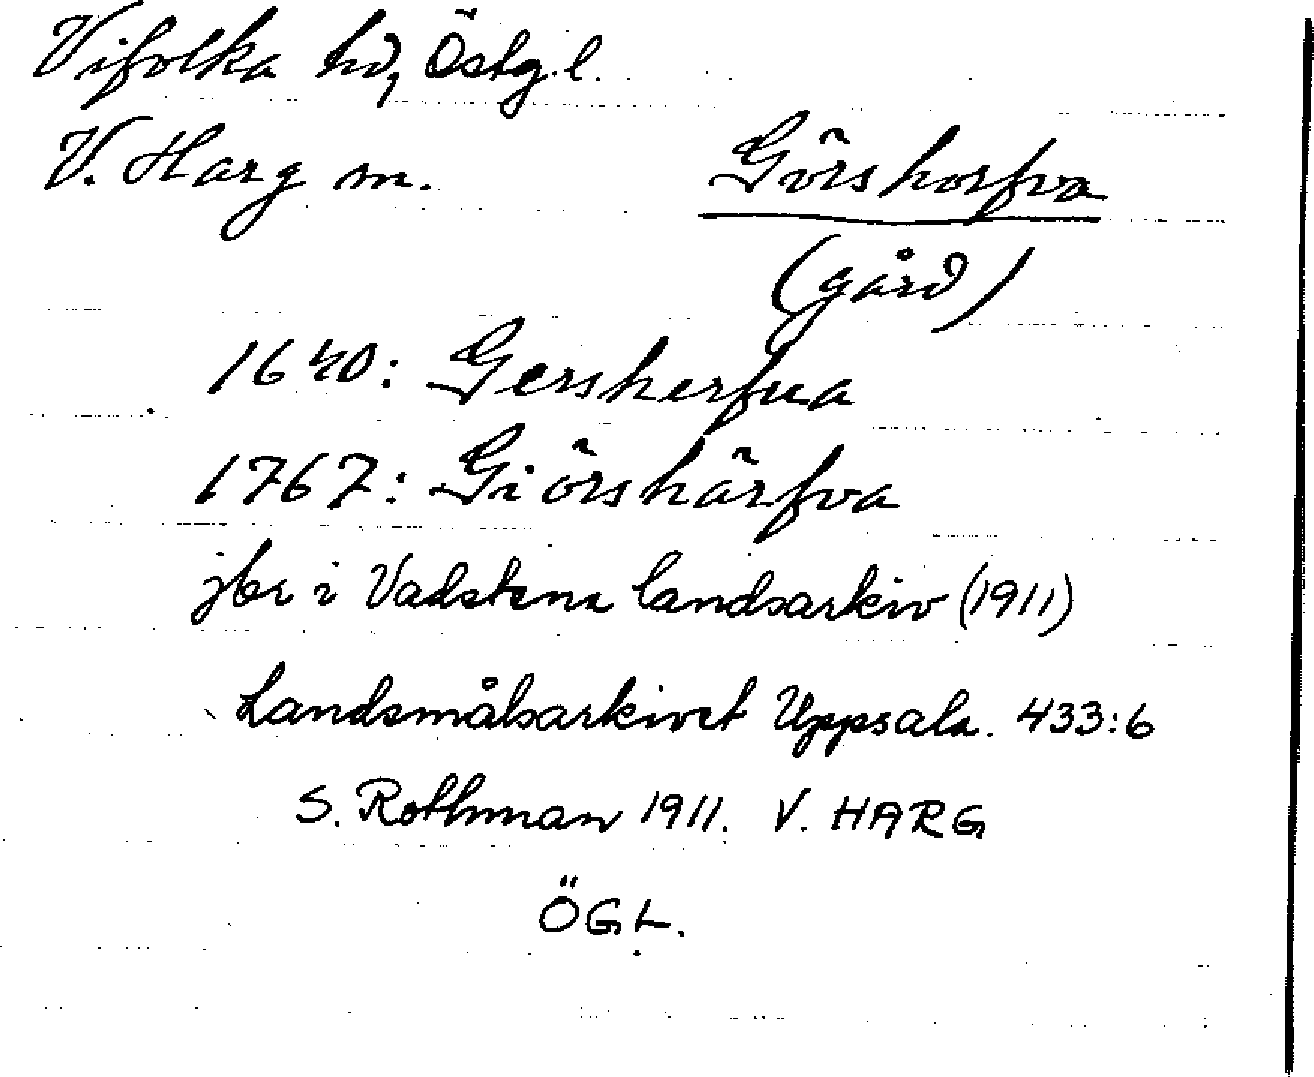 Vifolka hd, Östg.l.
V. Harg sn.
Görshorfva
(gård)
1640: Gersherfua
1767: Giörshärfva
jbr i Vadstena landsarkiv (1911)
Landsmålsarkivet Uppsala. 433:6
S. Rothman 1911. V. HARG
ÖGL.